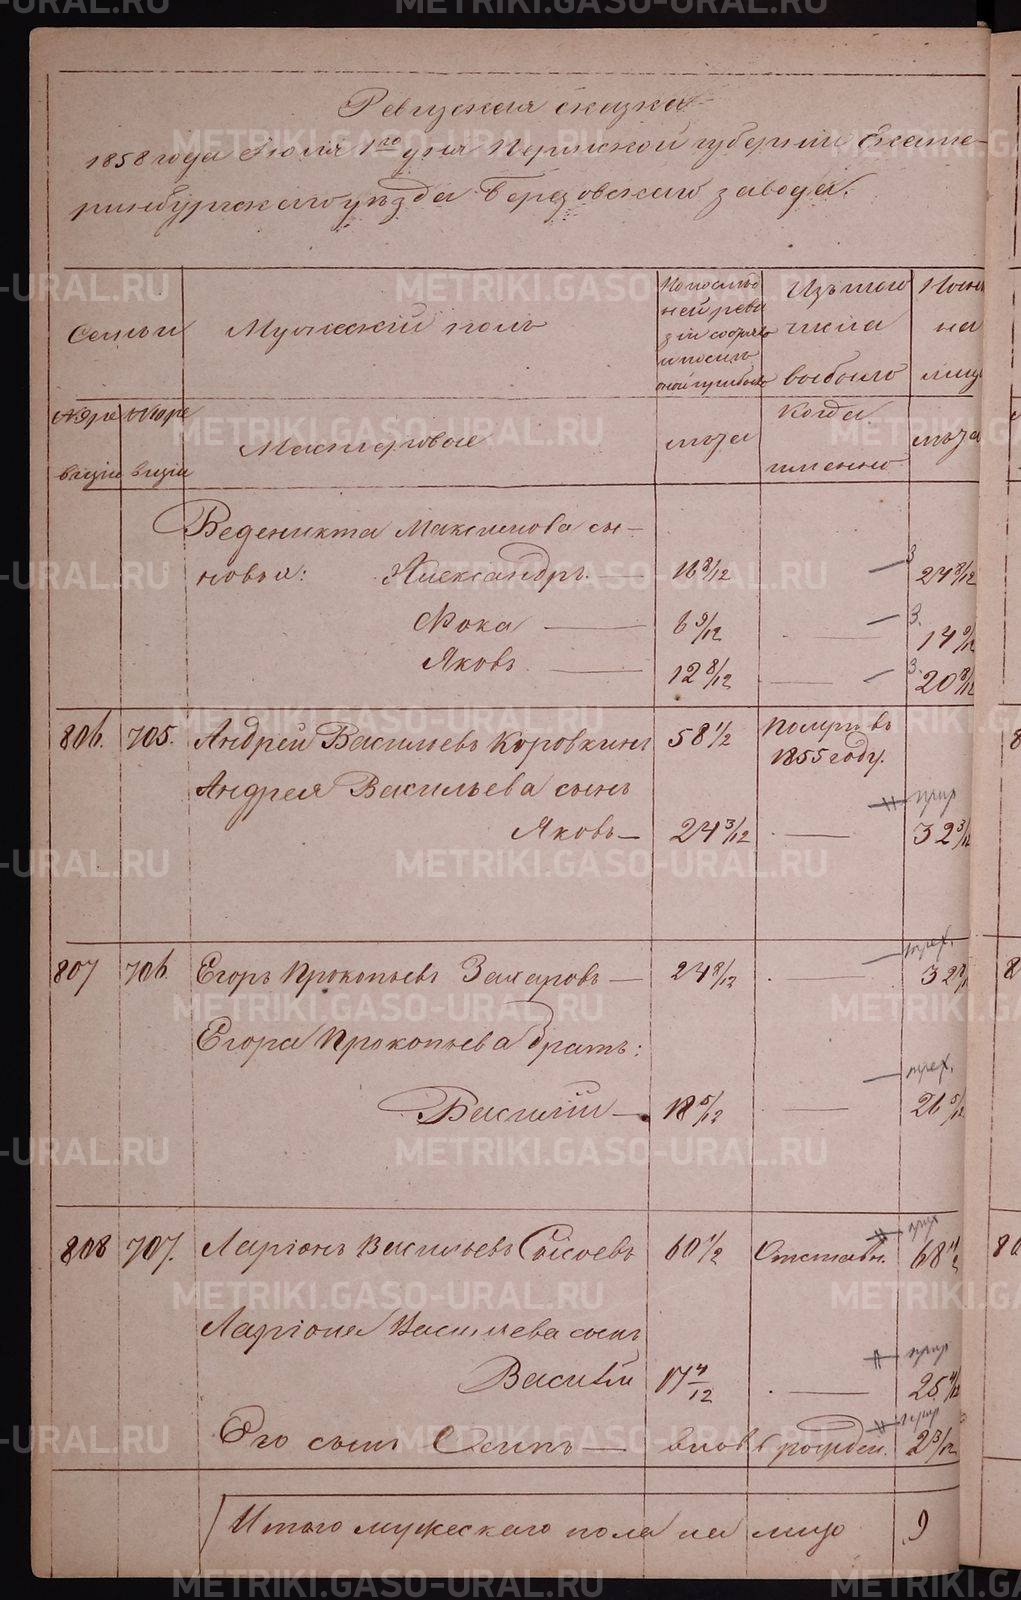 Ревизская сказка
1858 года Июля 1го дня Пермской губернии Екате-
ринбургскаго уезда Березовскаго завода.
Семьи
Мужский полъ
По послѣд
ней реви
зіи состояло
и после
оной прибыло
Изъ того
числа
выбыло
Ныне
на
лицо
Мастеровые
лѣта
Когда
именно
лѣта
Веденикта Максимова сы-
новья: Александръ 16 8/12 3 24 8/12
Фока 6 9/12 3. 14 9/12
Яковъ 12 8/12 3. 20 8/12
806. 705. Андрей Васильевъ Коровкинъ 58 1/2 Померъ въ
1855 году.
Андрея Васильева сынъ
Яковъ 24 3/12 32 3/12
807 706. Егоръ Прокопьевъ Захаровъ 24 8/12 32 8/12
Егора Прокопьева братъ:
Василій 18 5/12 26 5/12
808 707. Ларіонъ Васильевъ Сысоевъ 60 1/2 Отставн. 68 1/2
Ларіона Васильева сынъ
Василій 17 4/12 25 4/12
Его сынъ Осипъ вновь рожден. 2 3/12
Итого мужескаго пола на лицо 9
METRIKI.GASO-URAL.RU